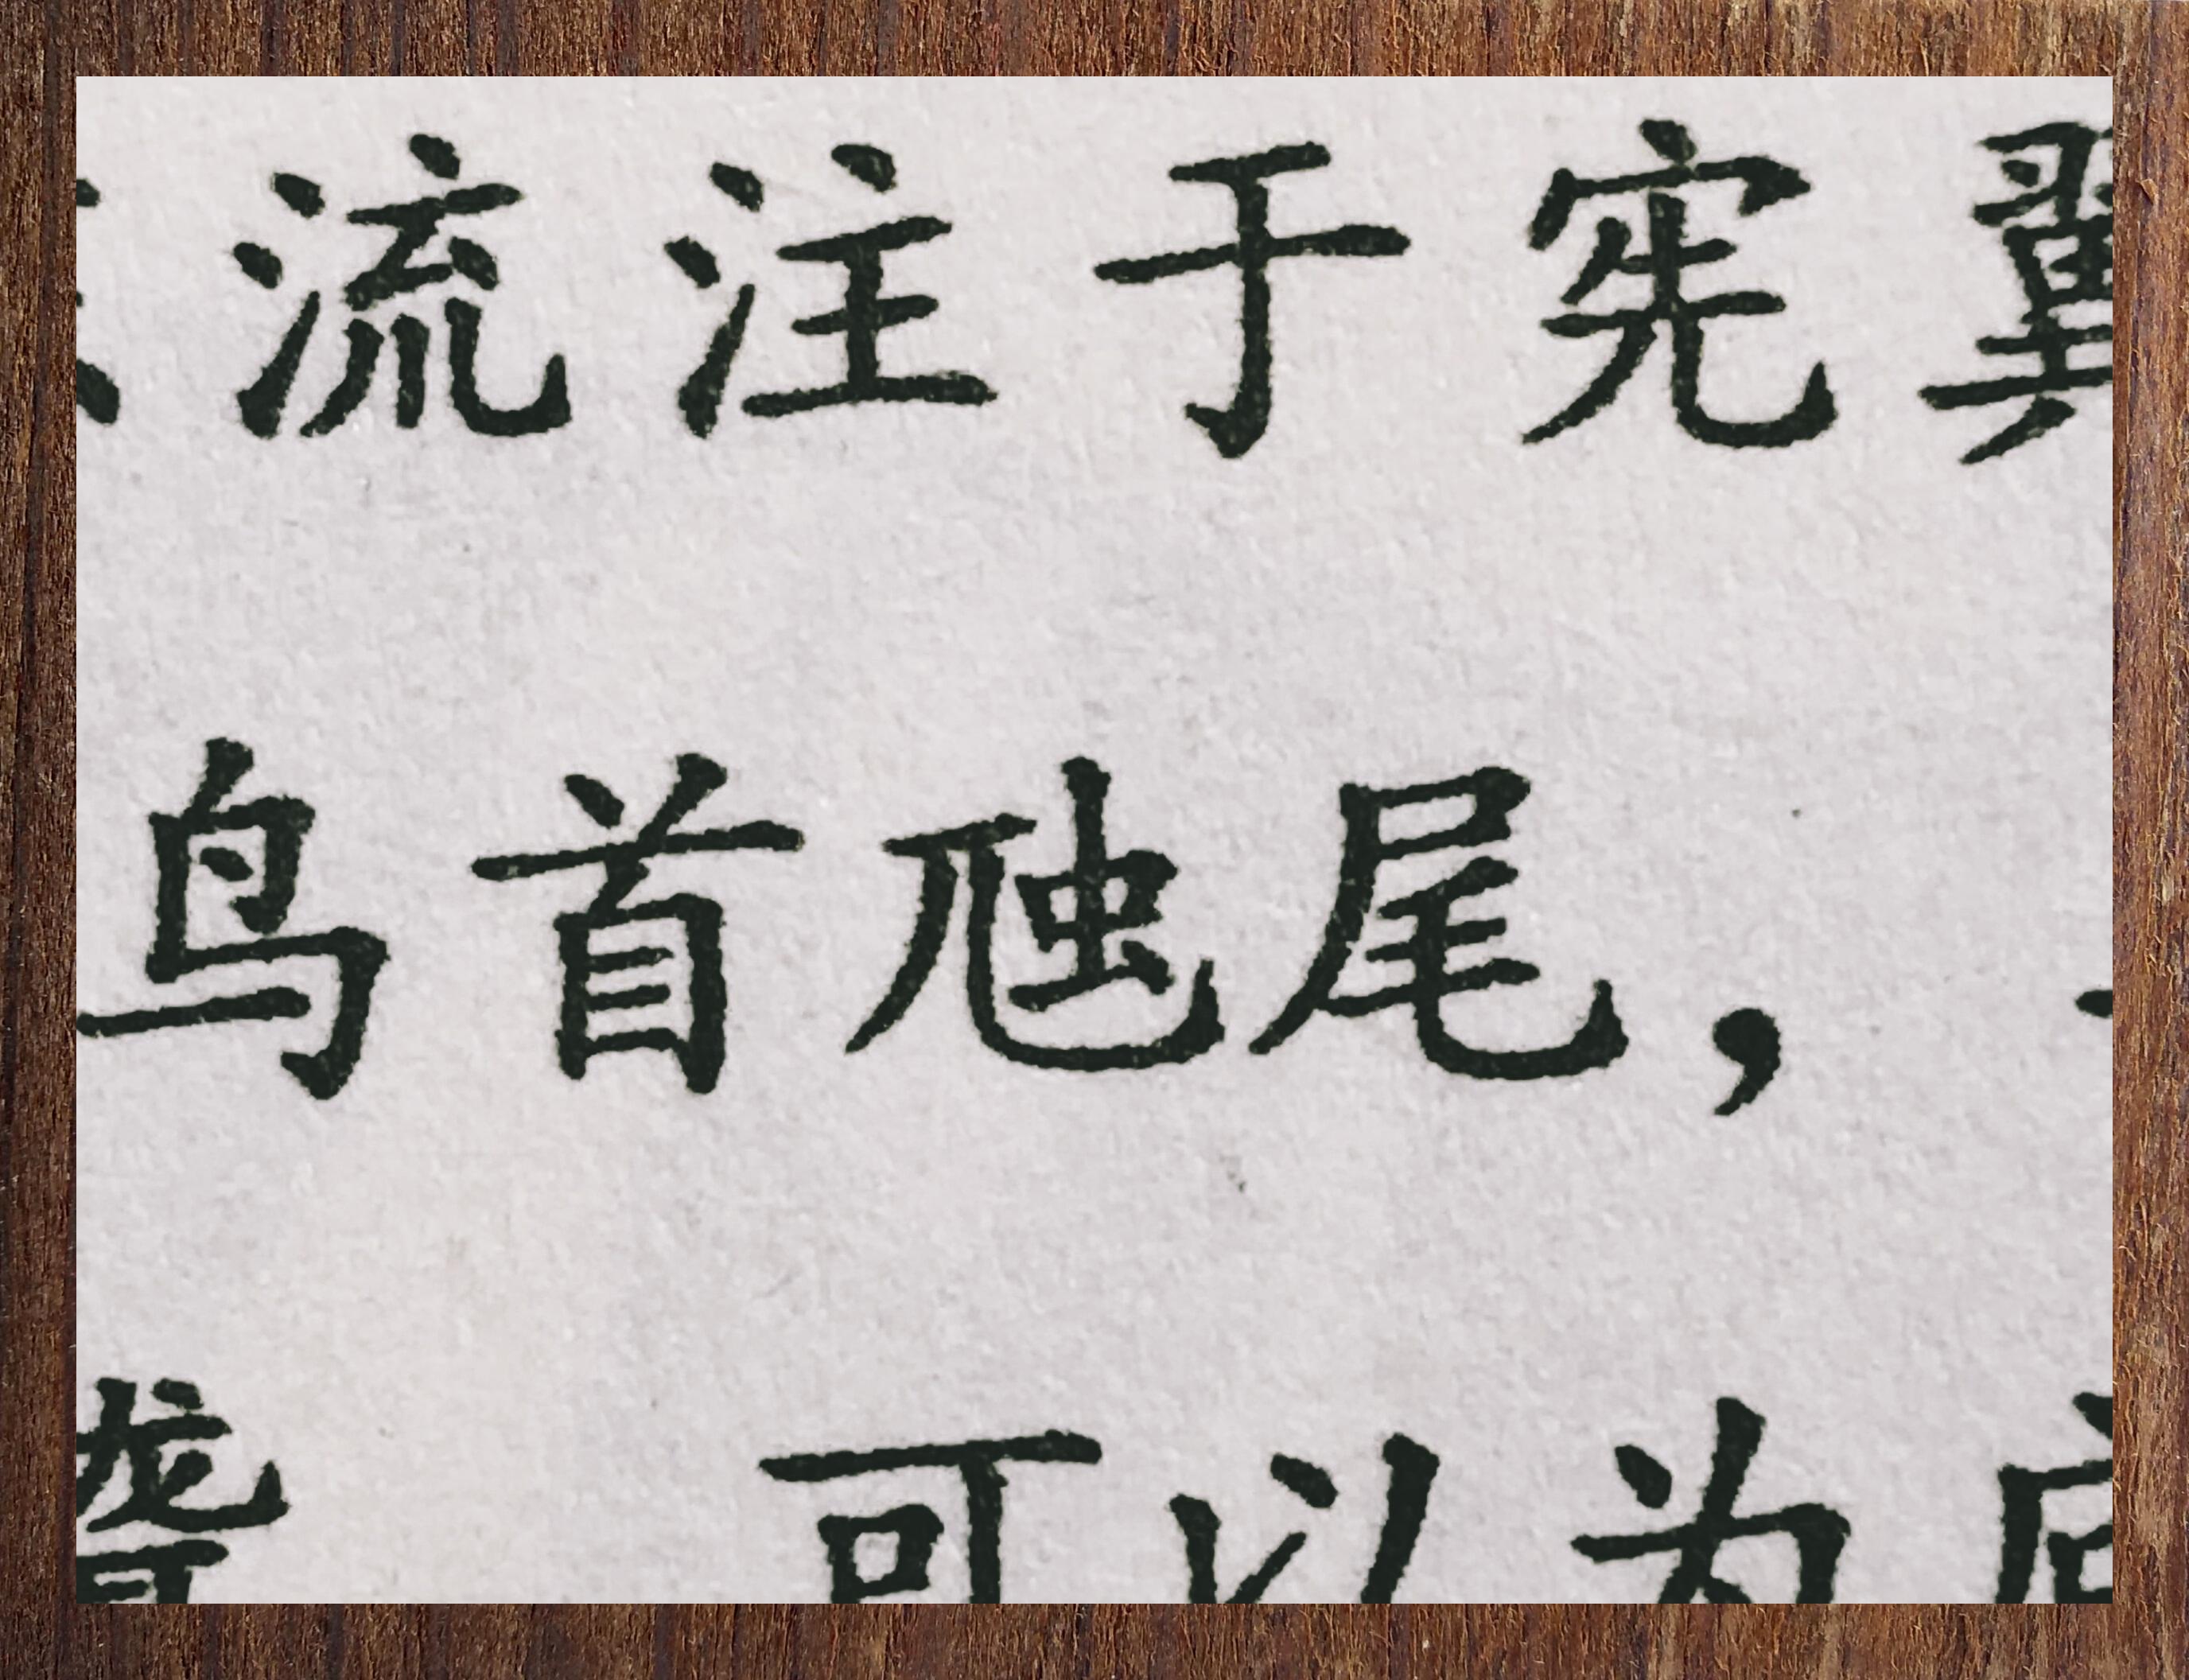 流注于宪翼
鸟首虺尾，
聋 可以为